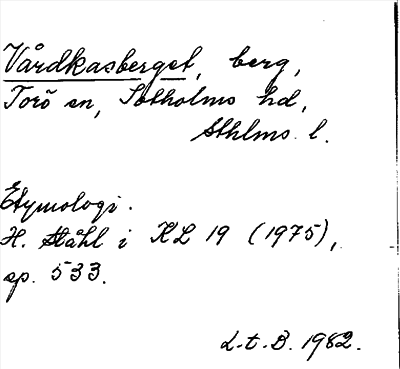 Vårdkasberget, berg,
Torö sn, Sotholms hd,
Sthlms l.
Etymologi.
H. Ståhl i KL 19 (1975),
sp. 533.
L.t.B. 1982.